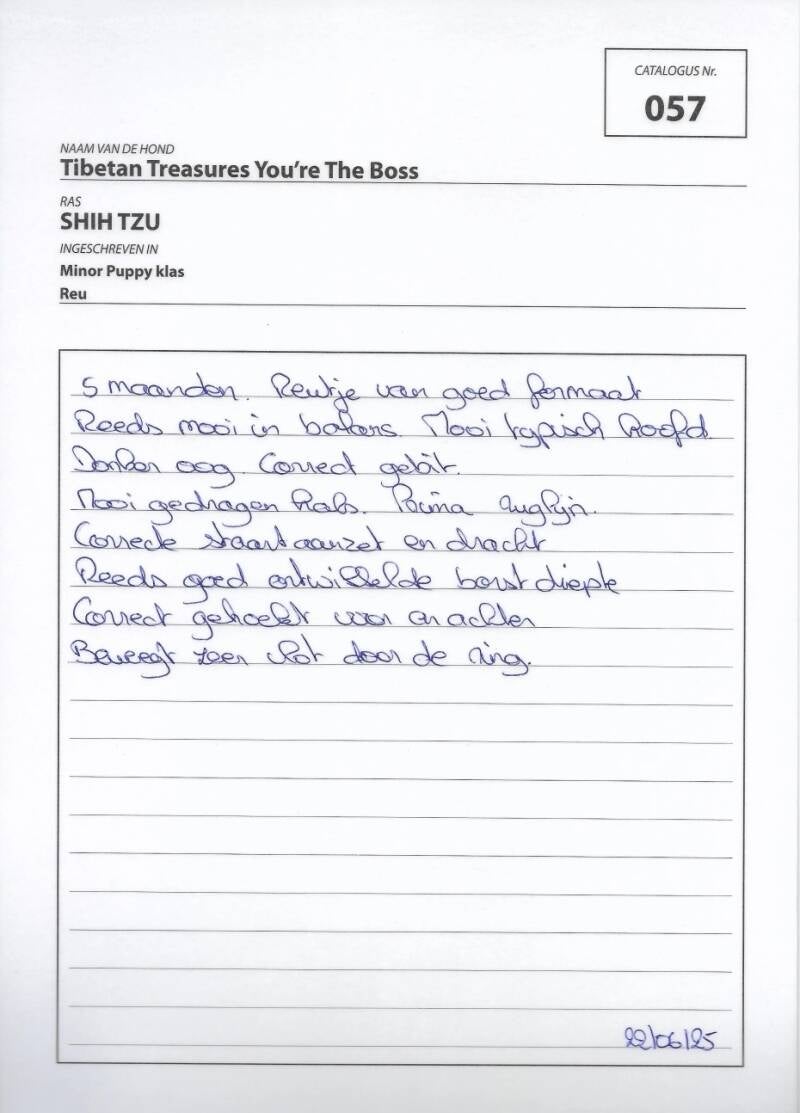 CATALOGUS Nr.
057
NAAM VAN DE HOND
Tibetan Treasures You're The Boss
RAS
SHIH TZU
INGESCHREVEN IN
Minor Puppy klas
Reu
5 maanden. Reutje van goed formaat
Reeds mooi in balans. Mooi typisch hoofd.
Donker oog. Correct gebit.
Mooi gedragen hals. Prima ruglijn.
Correcte staartaanzet en dracht
Reeds goed ontwikkelde borstdiepte
Correct gehoekt voor en achter
Beweegt zeer vlot door de ring.
22/06/25